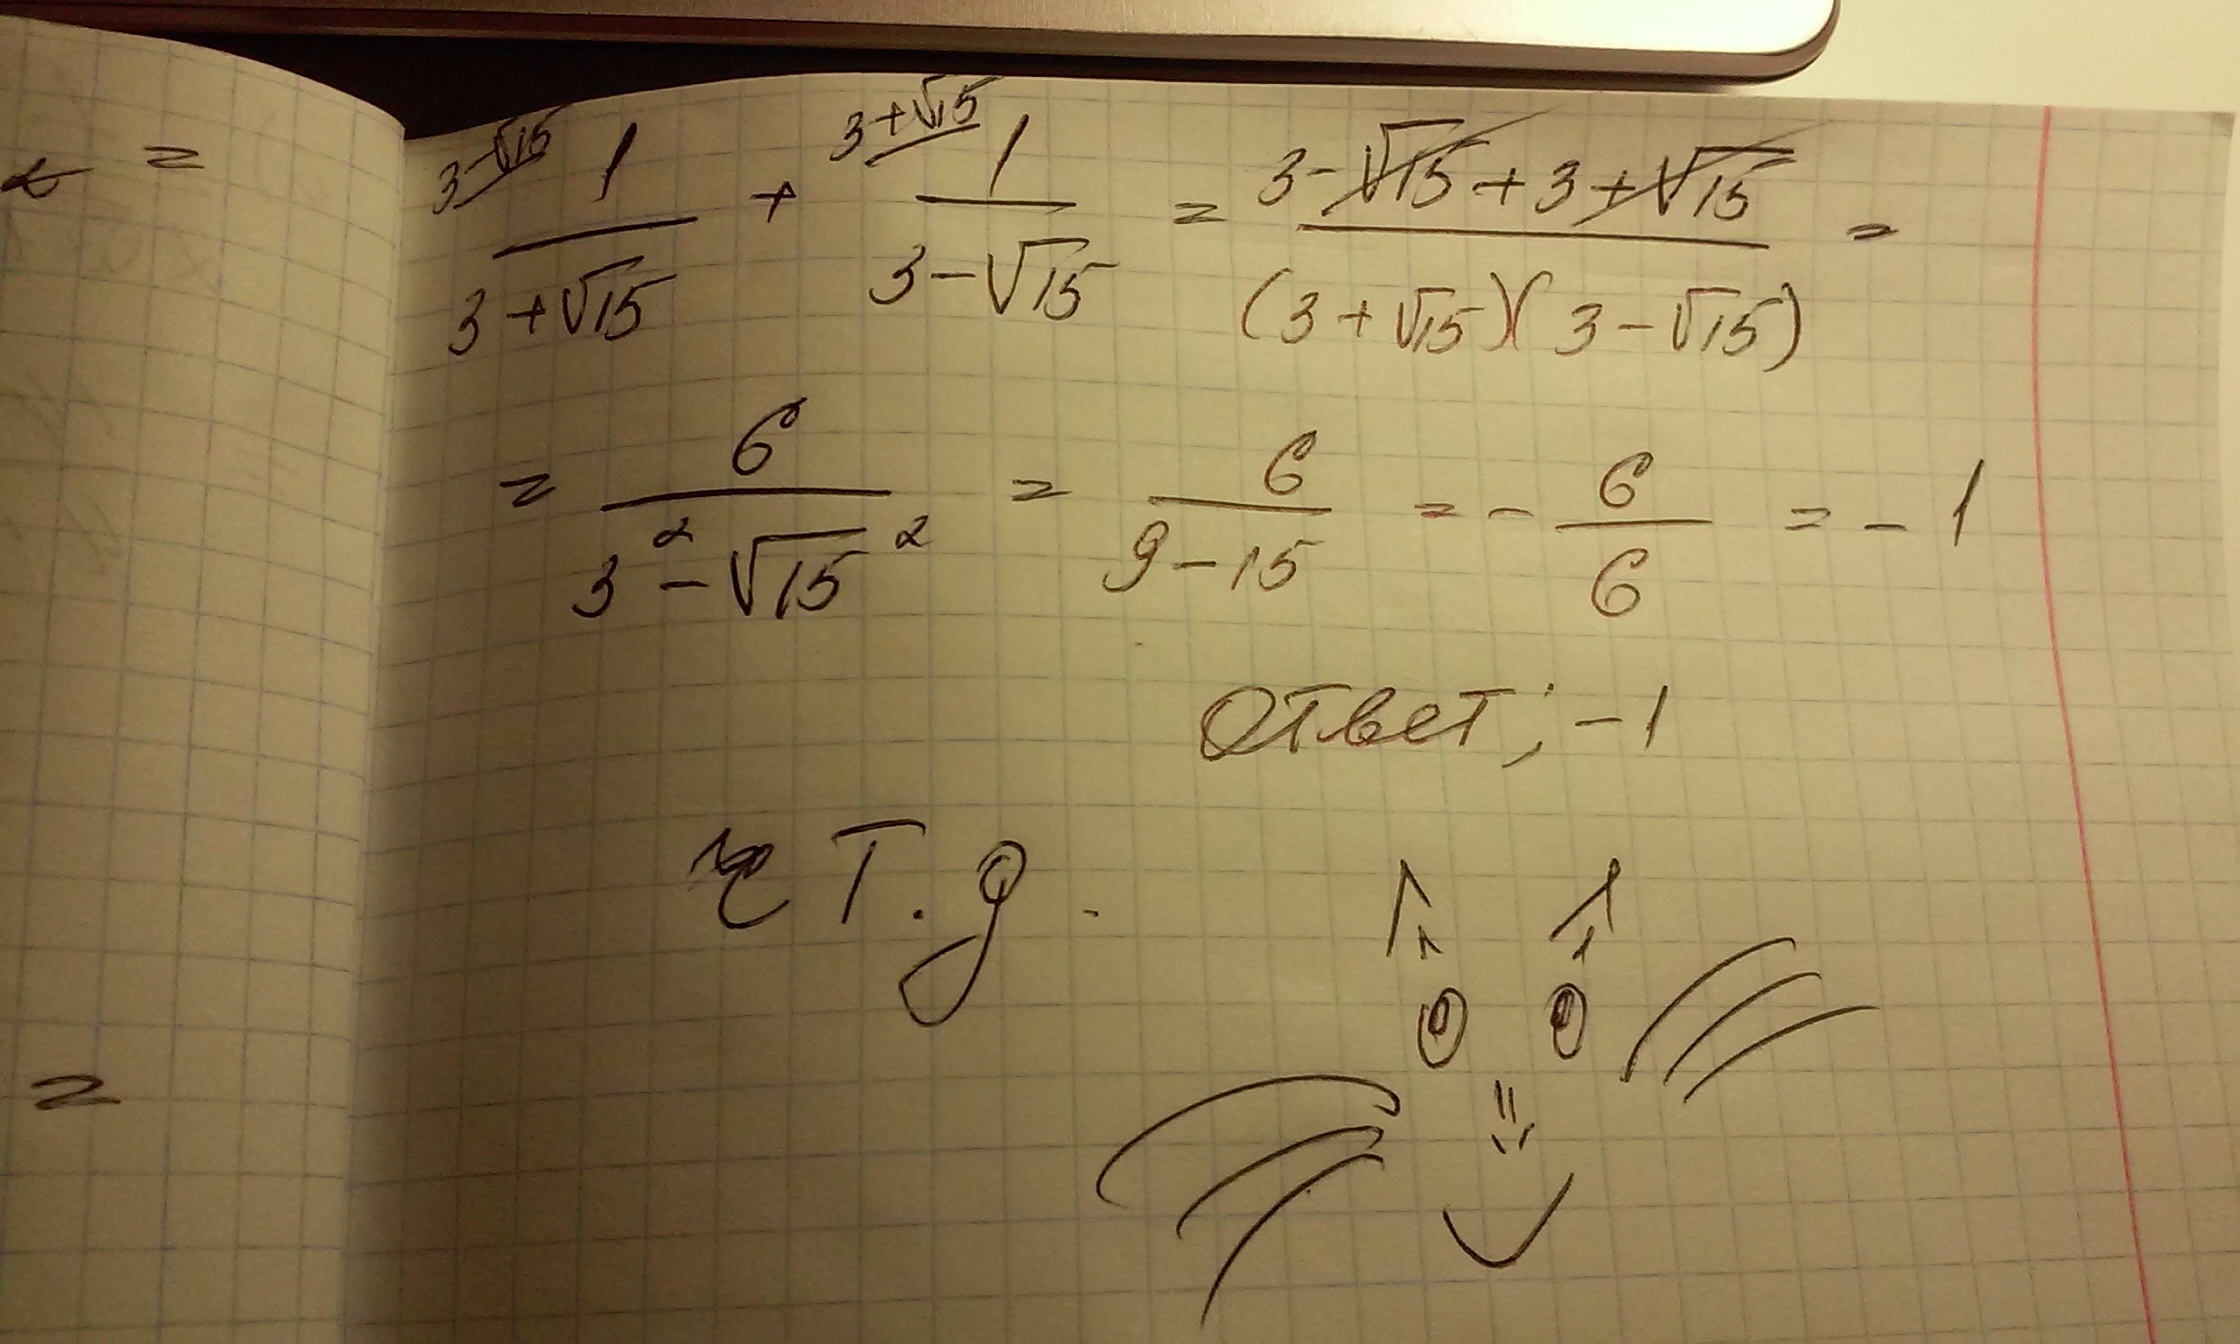 =
3-√15 1/(3+√15) + 3+√15 1/(3-√15) = (3-√15+3+√15)/((3+√15)(3-√15)) =
= 6/(3²-√15²) = 6/(9-15) = -6/6 = -1
Ответ: -1
ч Т. д.
=